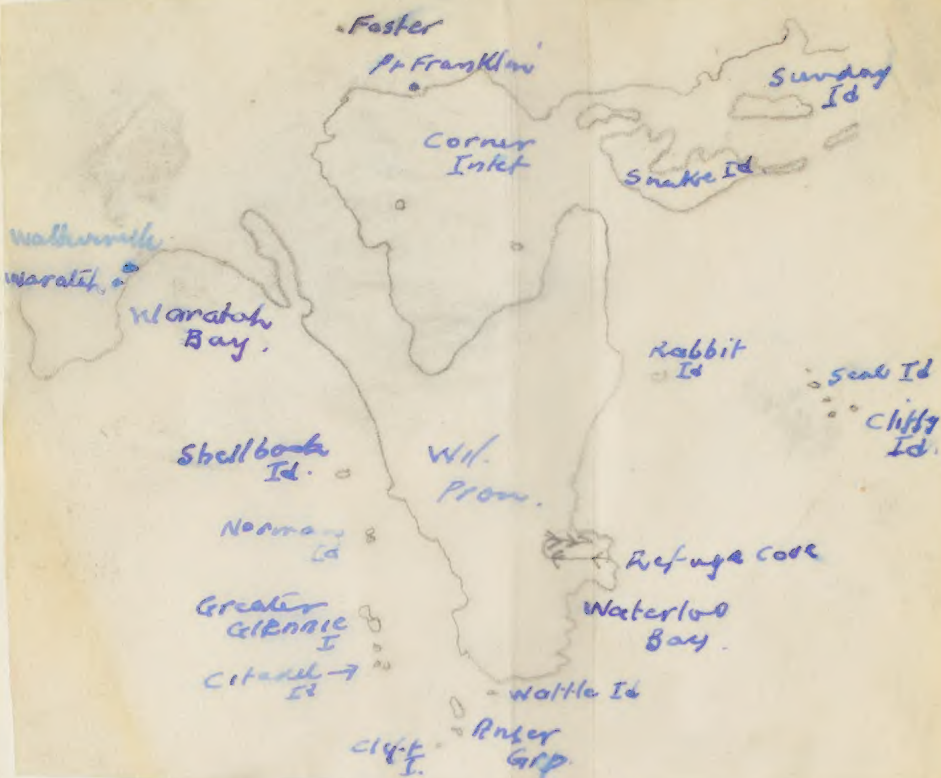 Foster
Pt Franklin
Sunday
Id
Corner
Inlet
Snake Id
Walkerville
Waratah
Waratah
Bay.
Rabbit
Id
Seal Id
Cliffy
Id.
Shellback
Id.
Wil.
Prom.
Norman
Id
Refuge Cove
Greater
Glennie
I
Waterloo
Bay.
Citadel →
Id
Wattle Id
Anser
Grp.
Cleft
I.